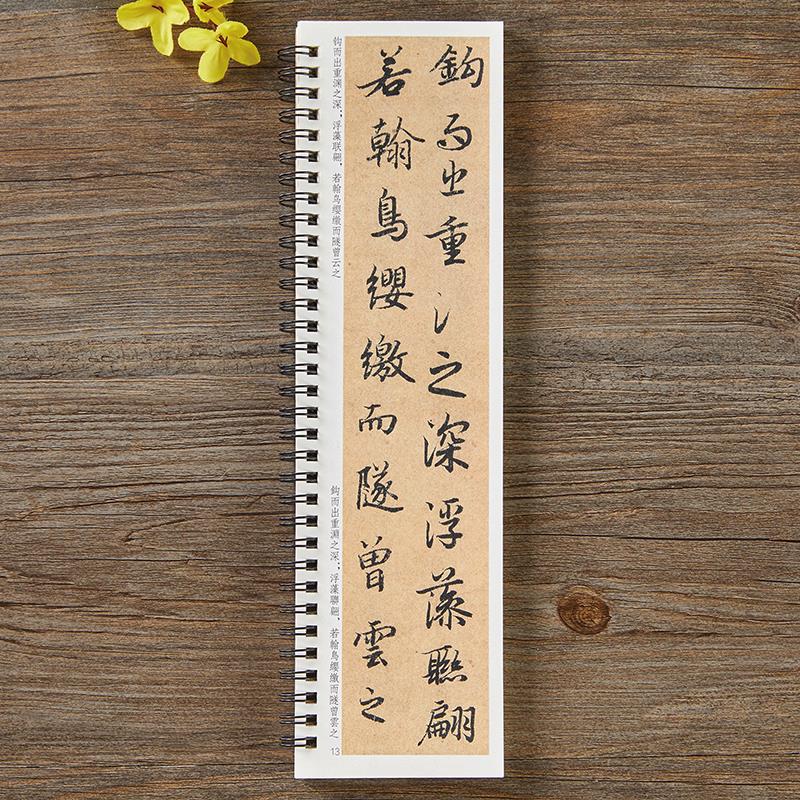 鈎而出重之深浮藻聯翩
若翰鳥纓繳而隧曾雲之
钩而出重渊之深；浮藻联翩，若翰鸟缨缴而隧曾云之
鈎而出重淵之深；浮藻聯翩，若翰鳥纓繳而隧曾雲之
13